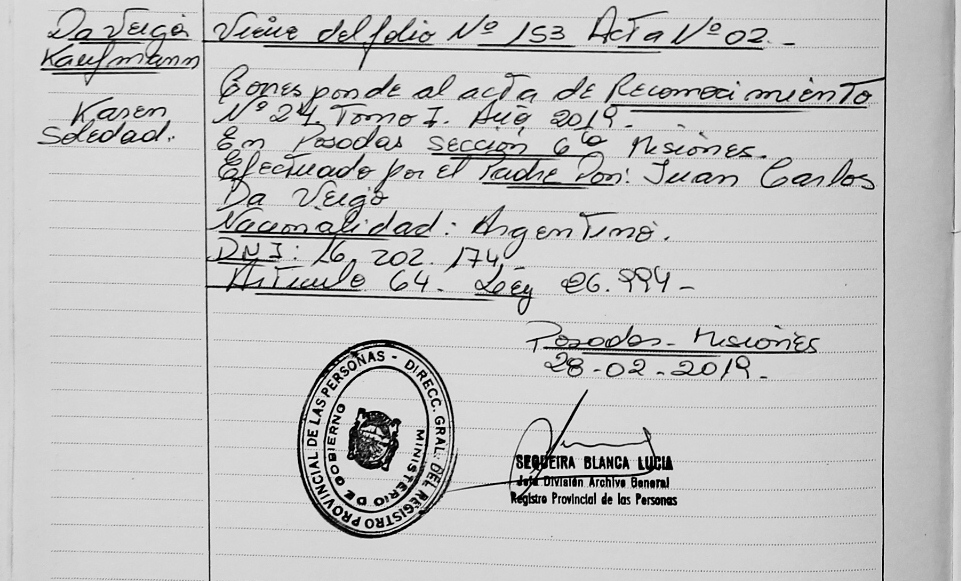 Da Veiga
Kaufmann
Karen
Soledad.
Viene del folio Nº 153 Acta Nº 02.-
Corresponde al acta de Reconocimiento
Nº 24. Tomo I. Año 2019.
En Posadas sección 6ta Misiones.
Efectuado por el Padre Don: Juan Carlos
Da Veiga
Nacionalidad: Argentino.
DNI: 16.202.174
Artículo 64. Ley 26.994-
Posadas - Misiones
28-02-2019.-
DIRECC. GRAL. DEL REGISTRO PROVINCIAL DE LAS PERSONAS -
MINISTERIO DE GOBIERNO
SEQUEIRA BLANCA LUCIA
Jefa División Archivo General
Registro Provincial de las Personas